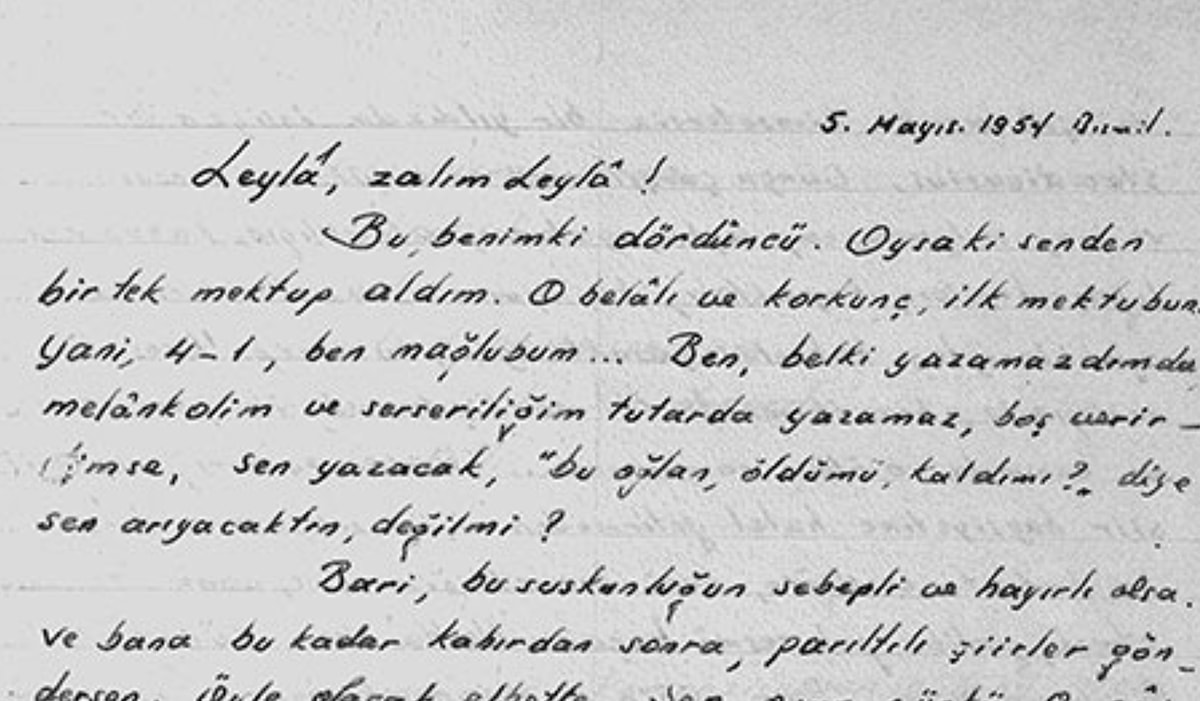 5. Mayıs. 1954
Leylâ, zalım Leylâ !
Bu, benimki dördüncü. Oysaki senden
bir tek mektup aldım. O belâlı ve korkunç, ilk mektubun,
Yani, 4-1, ben mağlubum.. Ben, belki yazamazdımda,
melânkolim ve serseriliğim tutarda yazamaz, boş verir-
imse, sen yazacak, "bu oğlan, öldümü, kaldımı?" diye
sen arıyacaktın, değilmi ?
Bari, bu suskunluğun sebepli ve hayırlı olsa.
Ve bana bu kadar kahırdan sonra, parıltılı şiirler gön-
dersen. Öyle olacak elbette.